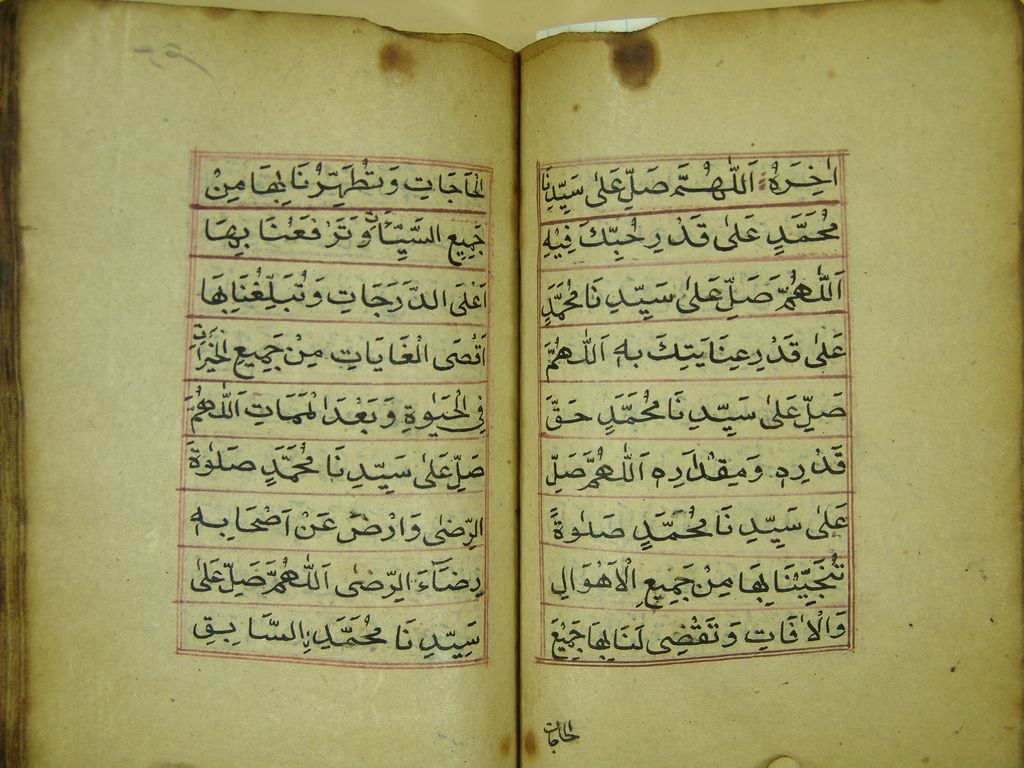 اٰخِرَهُ اَللّٰهُمَّ صَلِّ عَلٰى سَيِّدِنَا
مُحَمَّدٍ عَلٰى قَدْرِ حُبِّكَ فِيْهِ
اَللّٰهُمَّ صَلِّ عَلٰى سَيِّدِنَا مُحَمَّدٍ
عَلٰى قَدْرِ عِنَايَتِكَ بِهِ اَللّٰهُمَّ
صَلِّ عَلٰى سَيِّدِنَا مُحَمَّدٍ حَقَّ
قَدْرِهِ وَمِقْدَارِهِ اَللّٰهُمَّ صَلِّ
عَلٰى سَيِّدِنَا مُحَمَّدٍ صَلٰوةً
تُنْجِيْنَا بِهَا مِنْ جَمِيْعِ الْاَهْوَالِ
وَالْاٰفَاتِ وَتَقْضِى لَنَا بِهَا جَمِيْعَ
الحاجات
الْحَاجَاتِ وَتُطَهِّرُنَا بِهَا مِنْ
جَمِيْعِ السَّيِّاٰتِ وَتَرْفَعُنَا بِهَا
اَعْلَى الدَّرَجَاتِ وَتُبَلِّغُنَا بِهَا
اَقْصَى الْغَايَاتِ مِنْ جَمِيْعِ الْخَيْرَاتِ
فِى الْحَيٰوةِ وَبَعْدَ الْمَمَاتِ اَللّٰهُمَّ
صَلِّ عَلٰى سَيِّدِنَا مُحَمَّدٍ صَلٰوةَ
الرِّضٰى وَارْضَ عَنْ اَصْحَابِهِ
رِضَاءَ الرِّضٰى اَللّٰهُمَّ صَلِّ عَلٰى
سَيِّدِنَا مُحَمَّدٍ السَّابِقِ